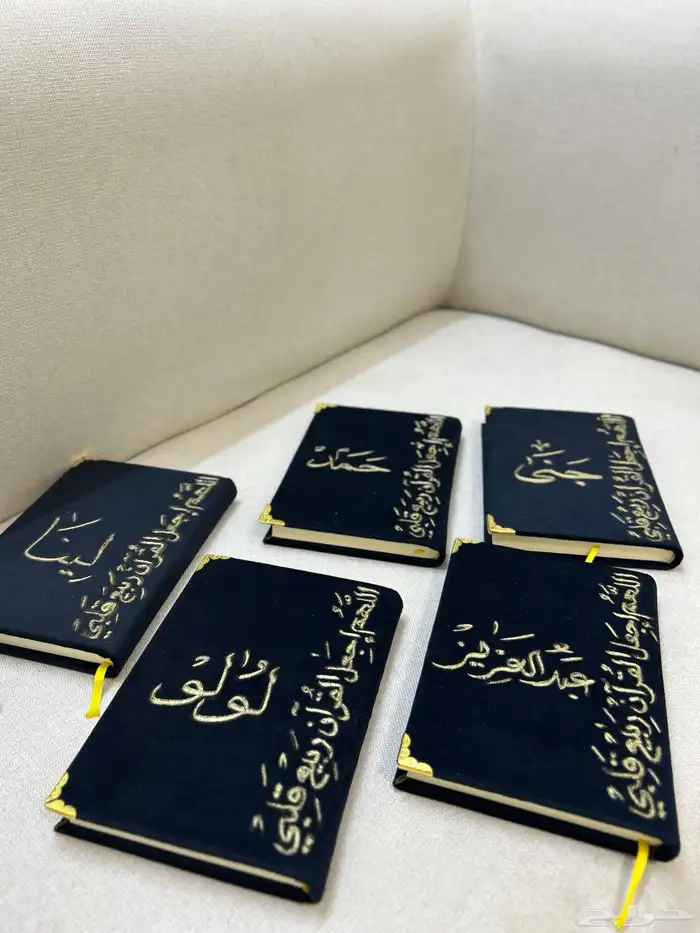 حَمَدْ
اللَّهُمَّ اجعَل القُرآن رَبِيع قَلبِي
جَنَى
اللَّهُمَّ اجعَل القُرآن رَبِيع قَلبِي
لِينَا
اللَّهُمَّ اجعَل القُرآن رَبِيع قَلبِي
لُولُو
اللَّهُمَّ اجعَل القُرآن رَبِيع قَلبِي
عَبدُالعَزِيز
اللَّهُمَّ اجعَل القُرآن رَبِيع قَلبِي
حراج